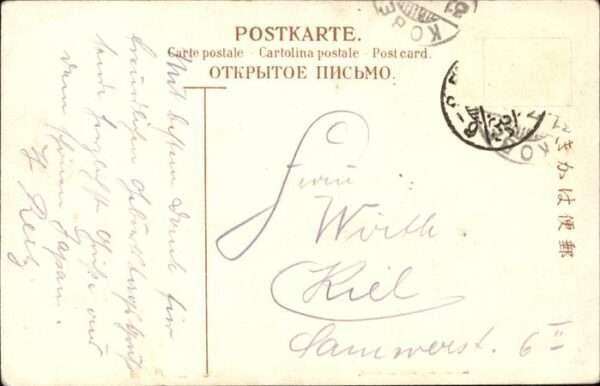 POSTKARTE.
Carte postale - Cartolina postale - Post card.
ОТКРЫТОЕ ПИСЬМО.
KOBE
KOBE
郵便はかき
Mit bestem Dank für
freundlichen
sende herzlichste Grüße aus
dem schönen Japan.
Herrn
Wirth.
Kiel
6 II